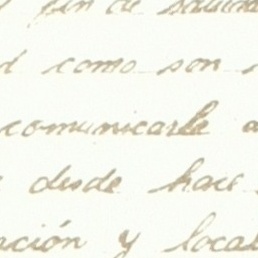 fin de
como son
comunicarle a
desde hace
y local